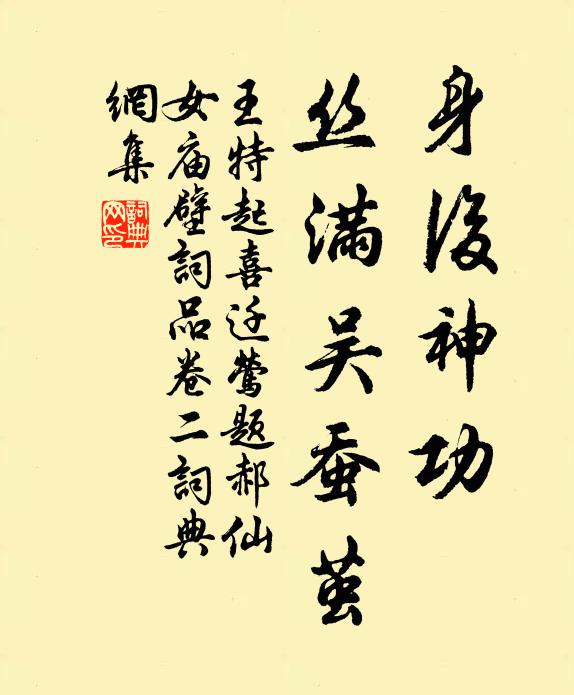 身後神功
丝满吴蚕茧
王特起喜迁莺题郝仙
女庙壁詞品卷二詞典
網集
詞典网印